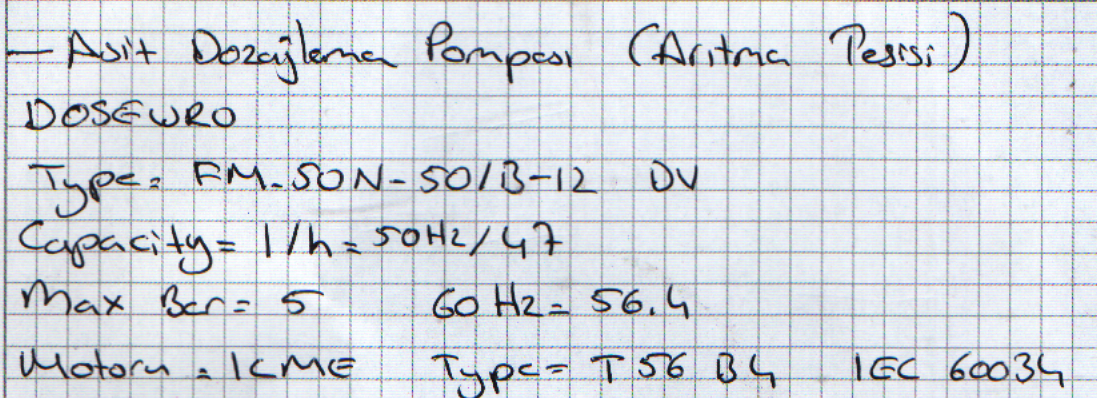 - Asit Dozajlama Pompası (Arıtma Tesisi)
DOSEWRO
Type= FM-50N-50/B-12 DV
Capacity= l/h= 50Hz/47
Max Bar= 5 60 Hz= 56.4
Motoru = ICME Type= T56 B4 IEC 60034